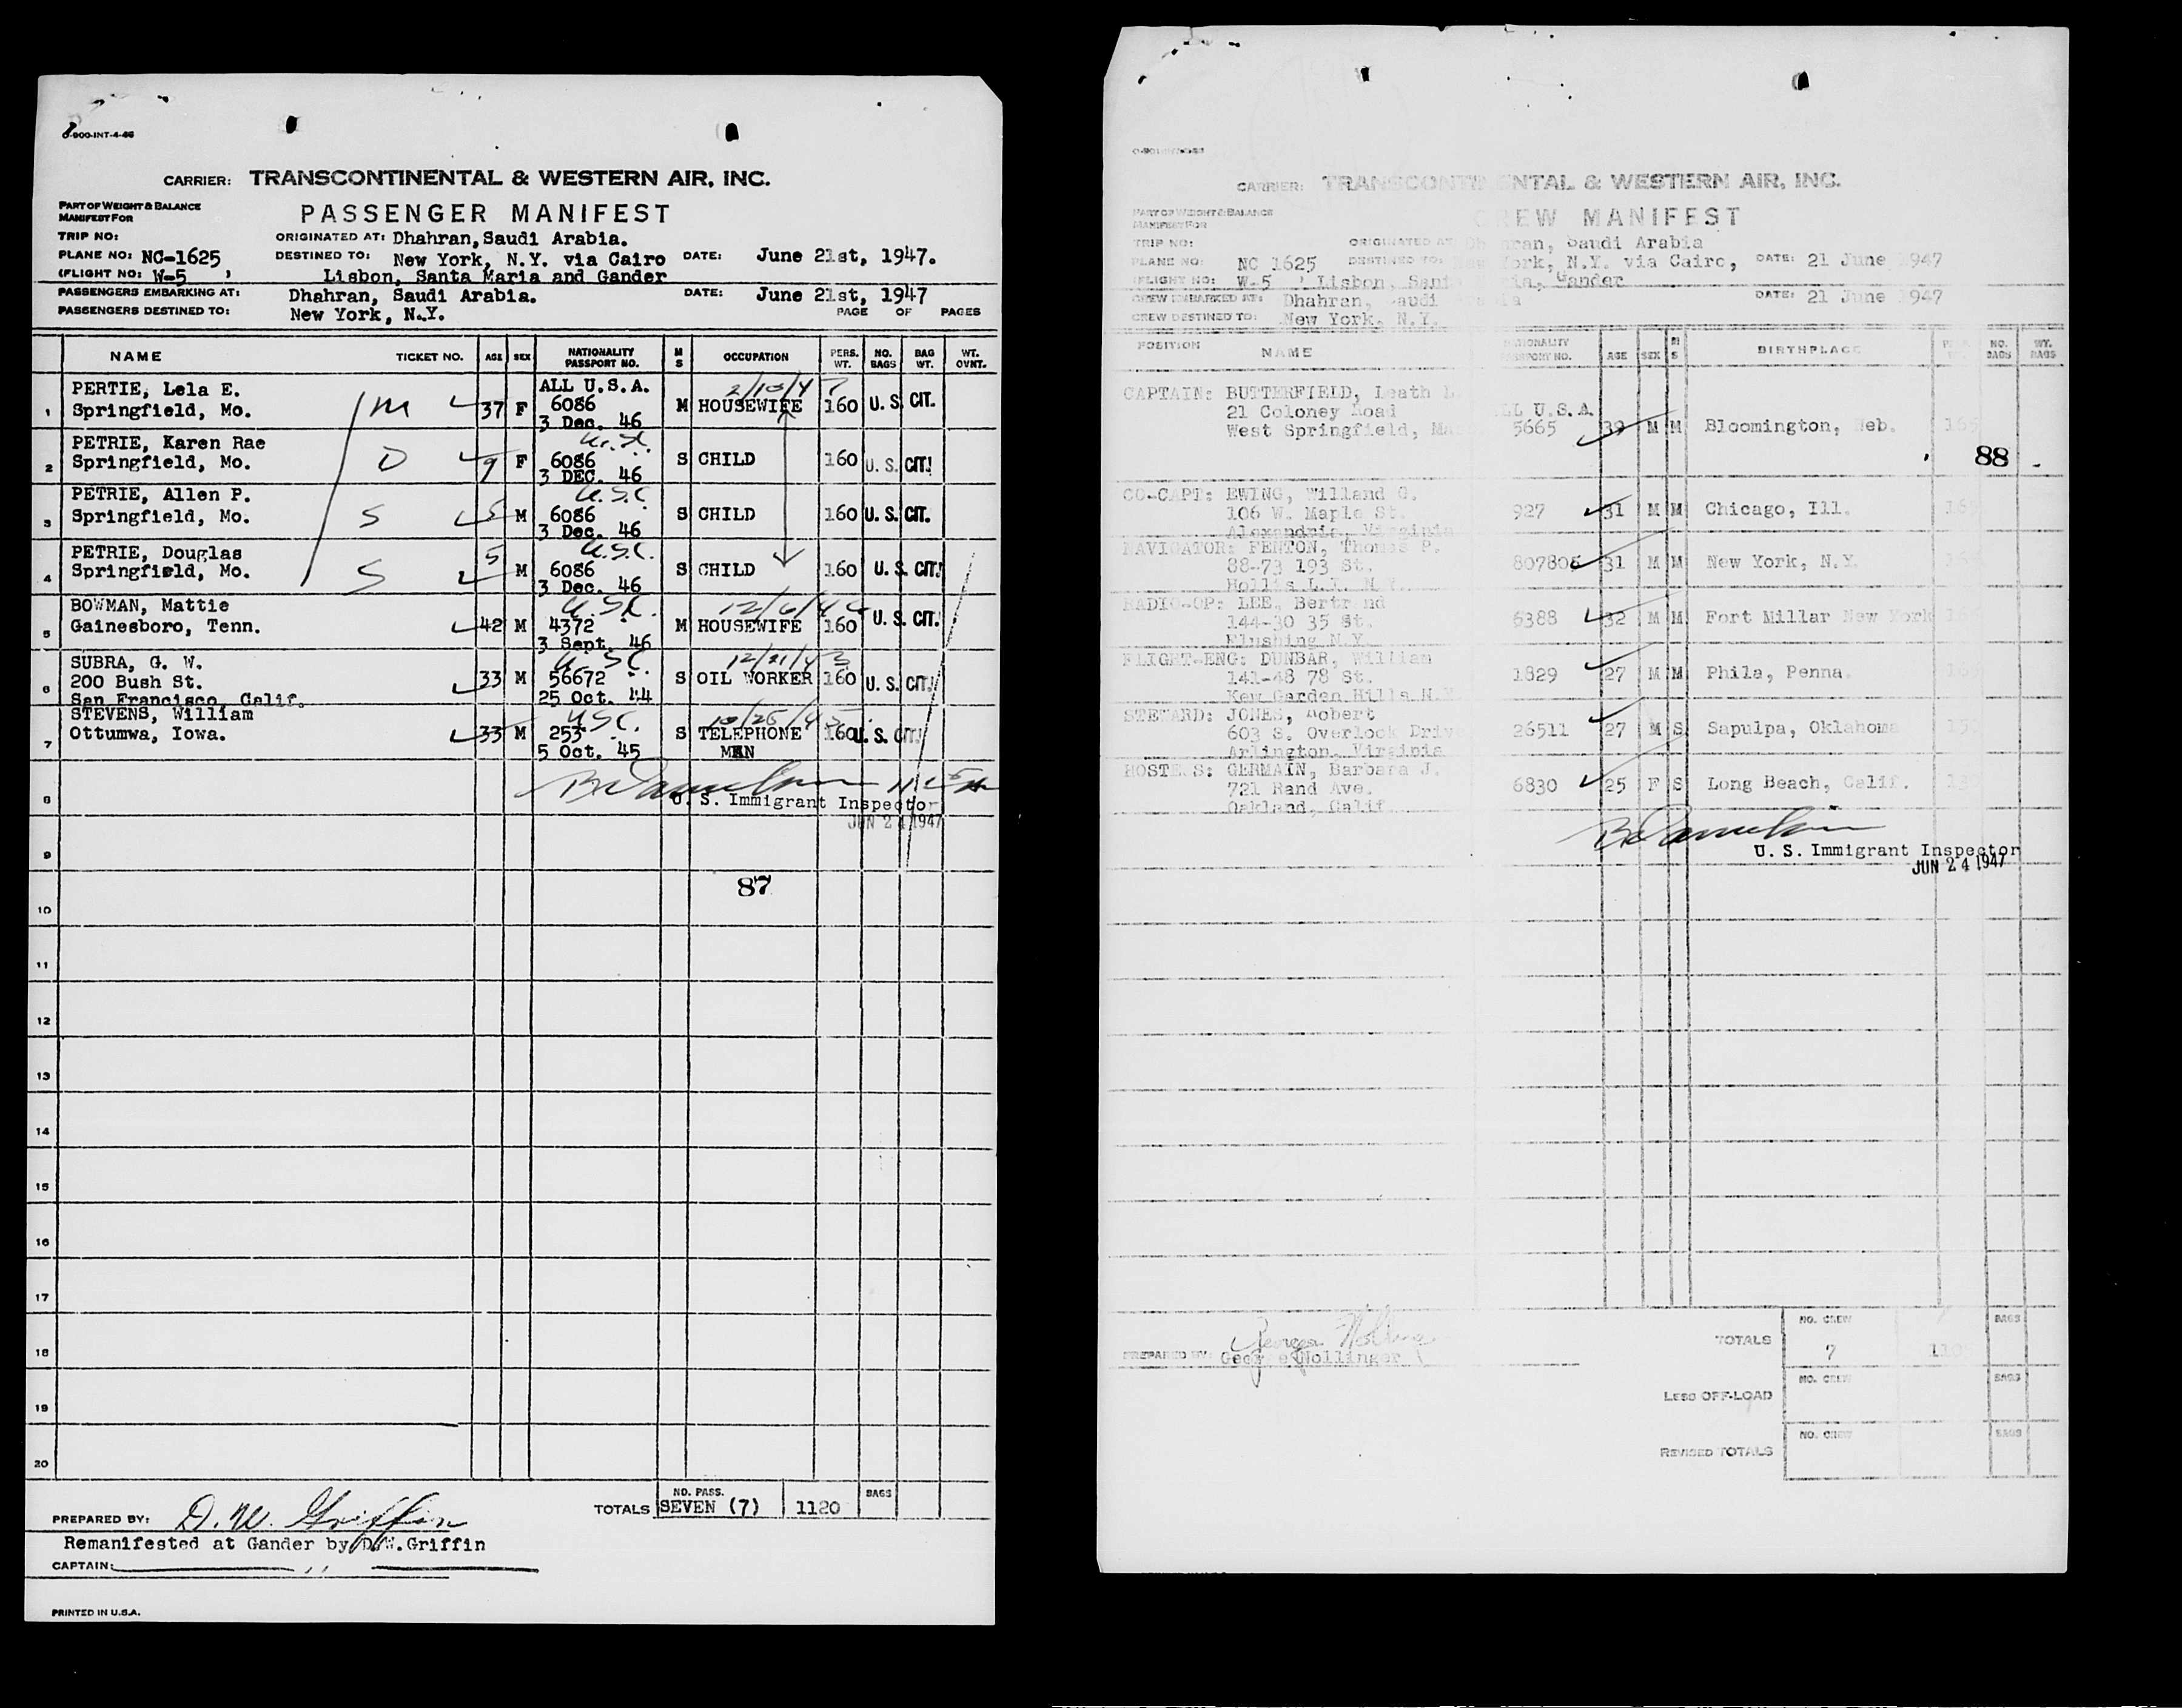 O-900-INT-4-46
CARRIER: TRANSCONTINENTAL & WESTERN AIR, INC.
PART OF WEIGHT & BALANCE
MANIFEST FOR
PASSENGER MANIFEST
TRIP NO:
ORIGINATED AT: Dhahran, Saudi Arabia.
PLANE NO: NC-1625
DESTINED TO: New York, N.Y. via Cairo
DATE: June 21st, 1947.
(FLIGHT NO: W-5 )
Lisbon, Santa Maria and Gander
PASSENGERS EMBARKING AT: Dhahran, Saudi Arabia.
DATE: June 21st, 1947
PASSENGERS DESTINED TO: New York, N.Y.
PAGE OF PAGES
NAME TICKET NO. AGE SEX NATIONALITY PASSPORT NO. M S OCCUPATION PERS. WT. NO. BAGS BAG WT. WT. OVNT.
PERTIE, Lela E. ALL U.S.A. 2/13/47
1 Springfield, Mo. M 37 F 6086 M HOUSEWIFE 160 U. S. CIT.
3 Dec. 46
PETRIE, Karen Rae U.S.
2 Springfield, Mo. D 9 F 6086 S CHILD 160 U. S. CIT.
3 DEC. 46
PETRIE, Allen P. U.S.C
3 Springfield, Mo. S 5 M 6086 S CHILD 160 U. S. CIT.
3 Dec. 46
PETRIE, Douglas 5 U.S.C.
4 Springfield, Mo. S M 6086 S CHILD 160 U. S. CIT.
3 Dec. 46
BOWMAN, Mattie U.S.C. 12/6/46
5 Gainesboro, Tenn. 42 M 4372 M HOUSEWIFE 160 U. S. CIT.
3 Sept. 46
SUBRA, G. W. U.S.C.
6 200 Bush St. 33 M 56672 S OIL WORKER 160 U. S. CIT.
San Francisco, Calif. 25 Oct. 44
STEVENS, William U.S.C. 10/25/45
7 Ottumwa, Iowa. 33 M 253 S TELEPHONE 160 U. S. CIT.
5 Oct. 45 MAN
8 U. S. Immigrant Inspector
JUN 24 1947
9
87
10
11
12
13
14
15
16
17
18
19
20
TOTALS NO. PASS. SEVEN (7) 1120 BAGS
PREPARED BY: D. W. Griffin
Remanifested at Gander by D.W.Griffin
CAPTAIN:
PRINTED IN U.S.A.
CARRIER: TRANSCONTINENTAL & WESTERN AIR, INC.
PART OF WEIGHT & BALANCE
MANIFEST FOR
CREW MANIFEST
TRIP NO:
ORIGINATED AT Dhahran, Saudi Arabia
PLANE NO: NC 1625
DESTINED TO: New York, N.Y. via Cairo,
DATE: 21 June 1947
(FLIGHT NO: W-5 ) Lisbon, Santa Maria, Gander
CREW EMBARKED AT: Dhahran, Saudi Arabia
DATE: 21 June 1947
CREW DESTINED TO: New York, N.Y.
POSITION NAME NATIONALITY PASSPORT NO. AGE SEX M S BIRTHPLACE NO. BAGS WT. BAGS
CAPTAIN: BUTTERFIELD, Leath
21 Coloney Road ALL U.S.A.
West Springfield, 5665 39 M M Bloomington, Neb.
88
CO-CAPT: EWING, Willand G.
106 W. Maple St. 927 31 M M Chicago, Ill.
Alexandria, Virginia
NAVIGATOR: FENTON, Thomas P.
88-73 193 St. 807805 31 M M New York, N.Y.
Hollis L.I. N.Y.
RADIO-OP: LEE, Bertrand
144-30 35 St. 6388 32 M M Fort Millar New York
Flushing N.Y.
FLIGHT-ENG: DUNBAR, William
141-48 78 St. 1829 27 M M Phila, Penna.
Kew Garden Hills N.Y.
STEWARD: JONES, Robert
603 S. Overlook Drive 26511 27 M S Sapulpa, Oklahoma
Arlington, Virginia
HOSTESS: GERMAIN, Barbara J.
721 Rand Ave. 6830 25 F S Long Beach, Calif.
Oakland, Calif
U. S. Immigrant Inspector
JUN 24 1947
PREPARED BY: George Nollinger
TOTALS NO. CREW 7 BAGS
LESS OFF-LOAD NO. CREW BAGS
REVISED TOTALS NO. CREW BAGS